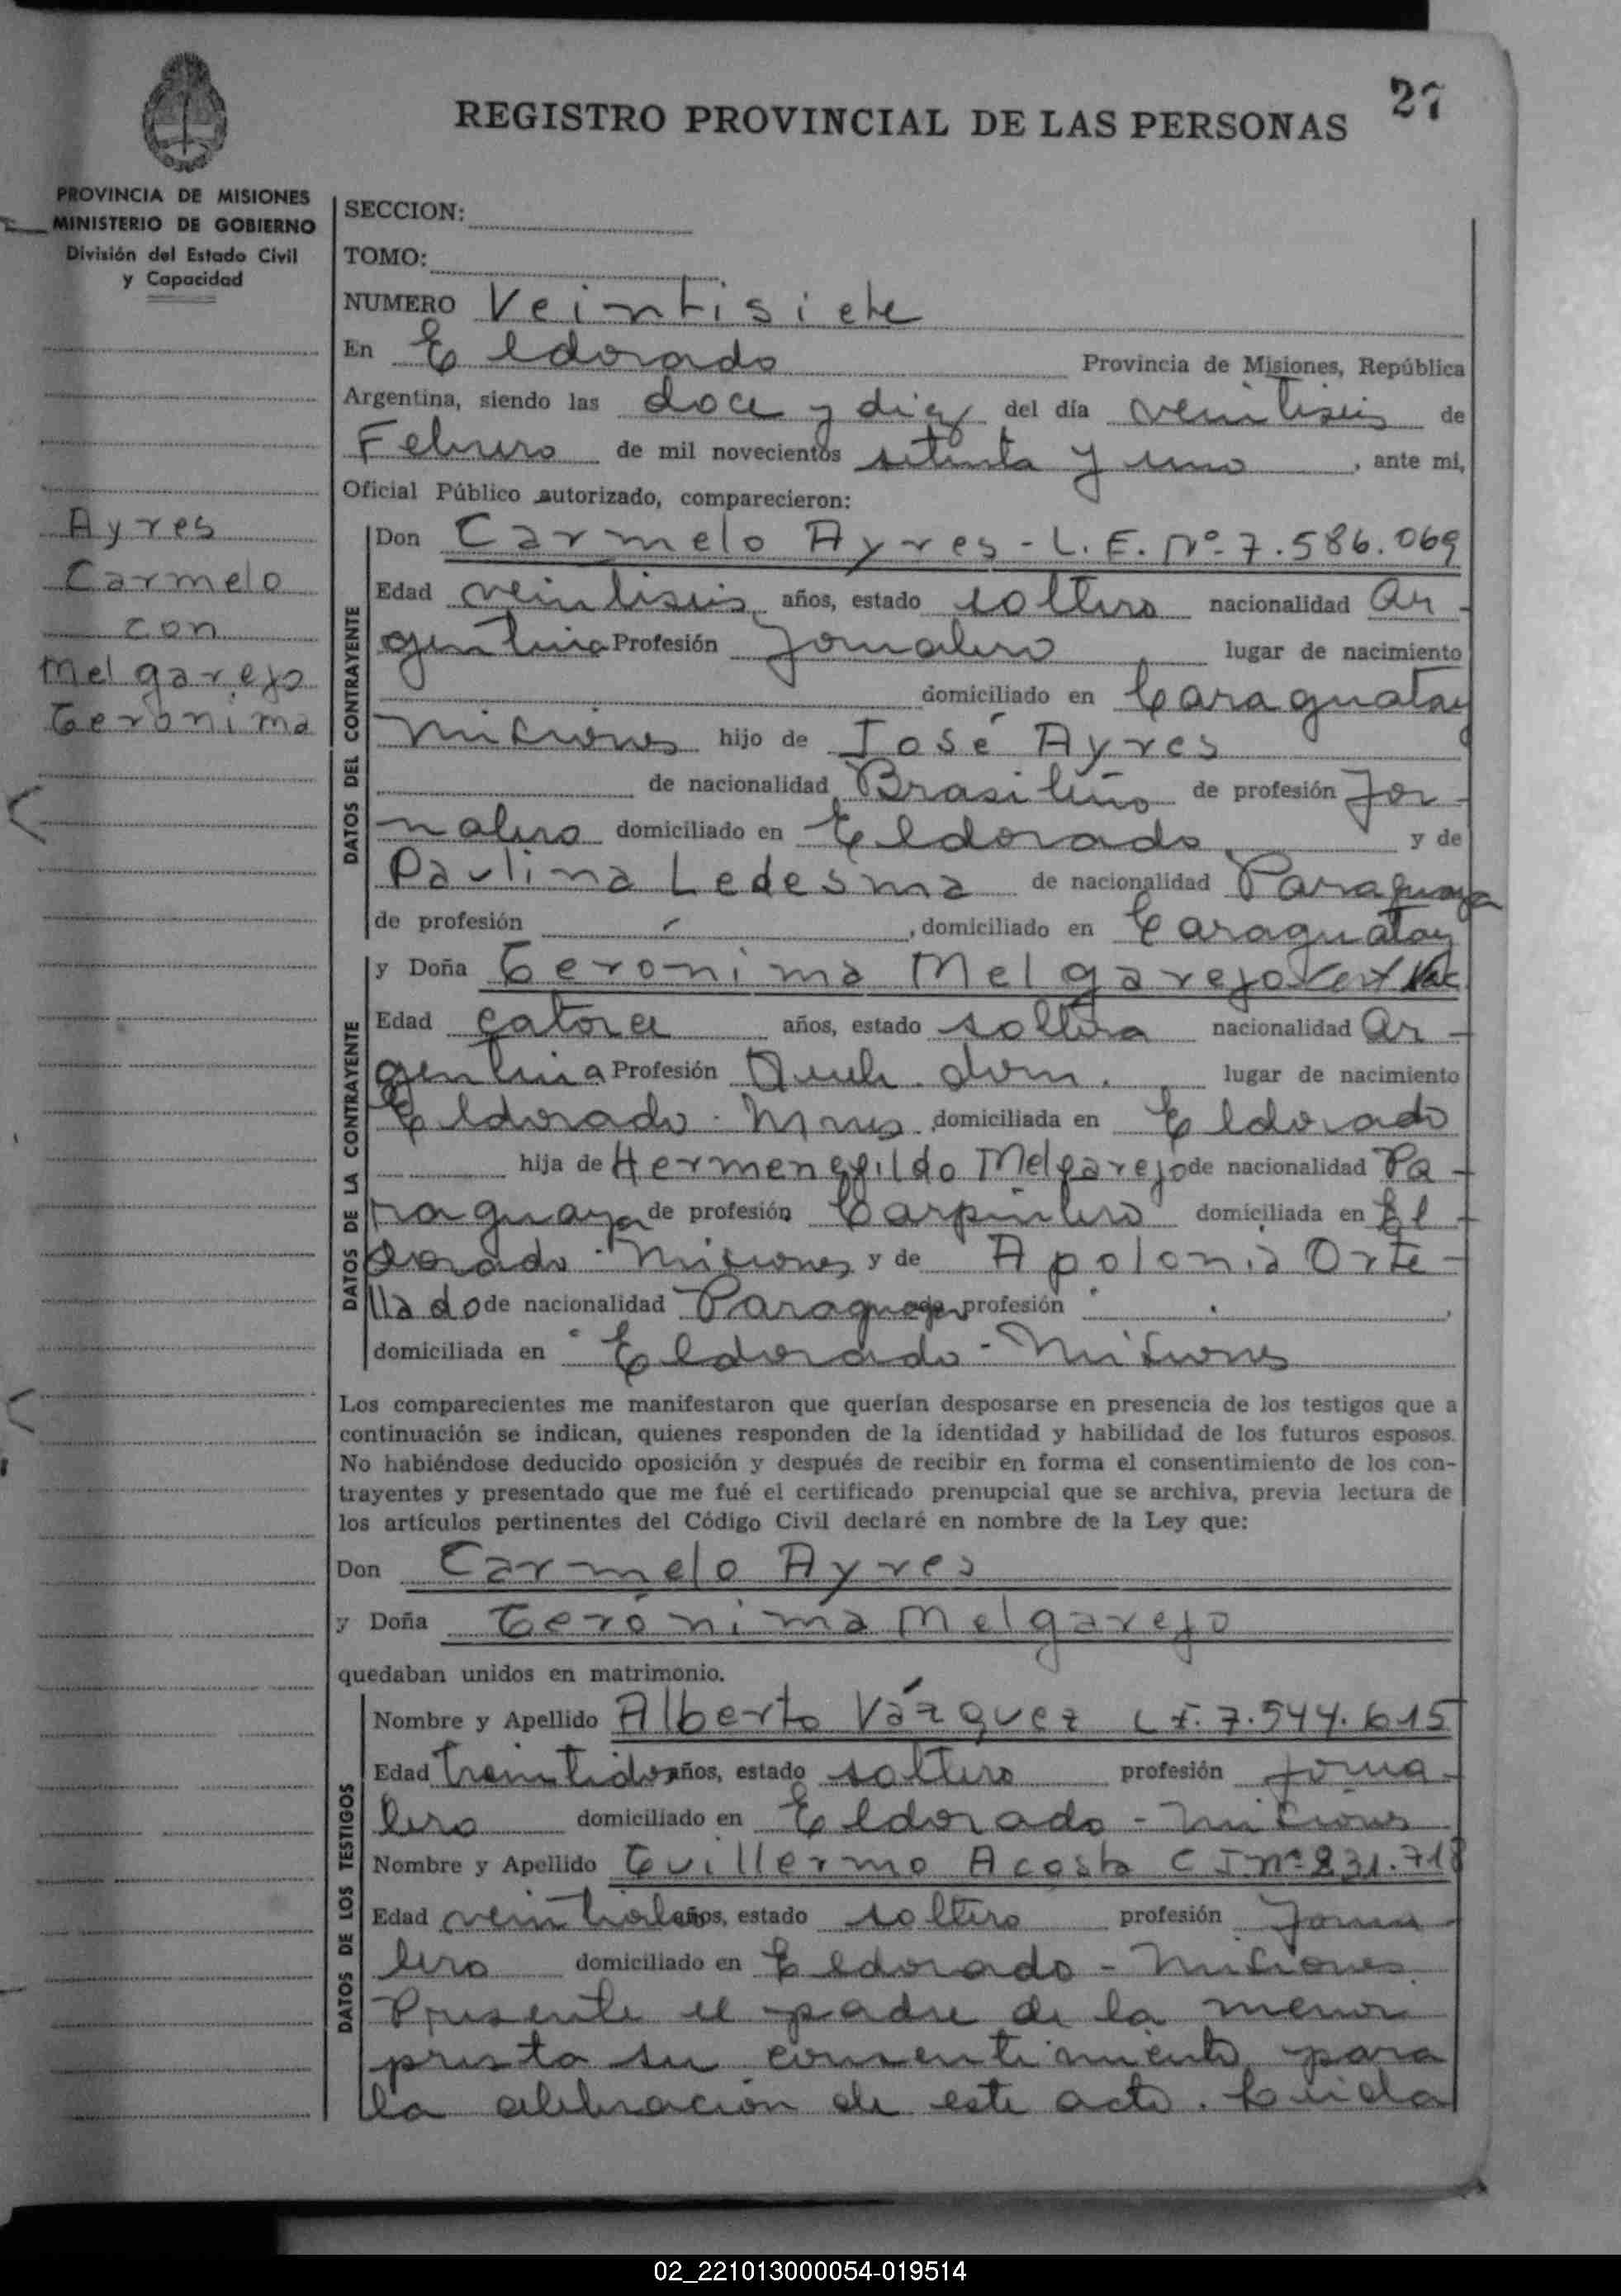 27
REGISTRO PROVINCIAL DE LAS PERSONAS
PROVINCIA DE MISIONES
MINISTERIO DE GOBIERNO
División del Estado Civil
y Capacidad
Ayres
Carmelo
con
Melgarejo
Geronima
SECCION:
TOMO:
NUMERO Veintisiete
En Eldorado Provincia de Misiones, República
Argentina, siendo las doce y diez del día veintiseis de
Febrero de mil novecientos setenta y uno, ante mi,
Oficial Público autorizado, comparecieron:
DATOS DEL CONTRAYENTE
Don Carmelo Ayres - L.E. Nº 7.586.069
Edad veintiseis años, estado soltero nacionalidad Ar-
gentina Profesión Jornalero lugar de nacimiento
domiciliado en Caraguatay
Misiones hijo de José Ayres
de nacionalidad Brasileño de profesión Jor-
nalero domiciliado en Eldorado y de
Paulina Ledesma de nacionalidad Paraguaya
de profesión - , domiciliado en Caraguatay
DATOS DE LA CONTRAYENTE
y Doña Geronima Melgarejo Cert Nac
Edad catorce años, estado soltera nacionalidad Ar-
gentina Profesión Queh. dom. lugar de nacimiento
Eldorado - Mnes domiciliada en Eldorado
hija de Hermenegildo Melgarejo de nacionalidad Pa-
raguaya de profesión Carpintero domiciliada en El-
dorado - Misiones y de Apolonia Orte-
llado de nacionalidad Paraguaya de profesión
domiciliada en Eldorado - Misiones
Los comparecientes me manifestaron que querían desposarse en presencia de los testigos que a
continuación se indican, quienes responden de la identidad y habilidad de los futuros esposos.
No habiéndose deducido oposición y después de recibir en forma el consentimiento de los con-
trayentes y presentado que me fué el certificado prenupcial que se archiva, previa lectura de
los artículos pertinentes del Código Civil declaré en nombre de la Ley que:
Don Carmelo Ayres
y Doña Gerónima Melgarejo
quedaban unidos en matrimonio.
DATOS DE LOS TESTIGOS
Nombre y Apellido Alberto Vázquez 7.544.615
Edad treintidos años, estado soltero profesión Jorna-
lero domiciliado en Eldorado - Misiones
Nombre y Apellido Guillermo Acosta C I Nº 231.718
Edad años, estado soltero profesión Jorna-
lero domiciliado en Eldorado - Misiones.
Presente el padre de la menor
presta su consentimiento para
la celebración de este acto. Leida
02_221013000054-019514